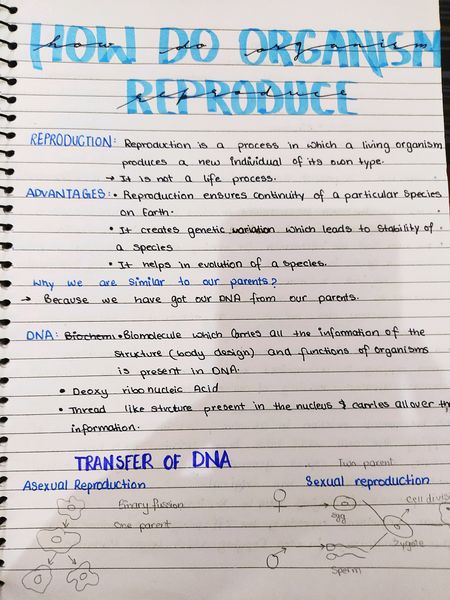 HOW DO ORGANISM
how do organism
REPRODUCE
reproduce
REPRODUCTION: Reproduction is a process in which a living organism
produces a new individual of its own type.
→ It is not a life process.
ADVANTAGES: • Reproduction ensures continuity of a particular species
on Earth.
• It creates genetic variation which leads to stability of
a species
• It helps in evolution of a species.
Why we are similar to our parents?
→ Because we have got our DNA from our parents.
DNA: Biochemi • Biomolecule which carries all the information of the
structure (body design) and functions of organisms
is present in DNA.
• Deoxy ribo nucleic Acid
• Thread like structure present in the nucleus & carries all over the
information.
TRANSFER OF DNA
Asexual Reproduction
Binary fussion
One parent
Two parent
Sexual reproduction
Egg
Cell divis
Zygote
Sperm